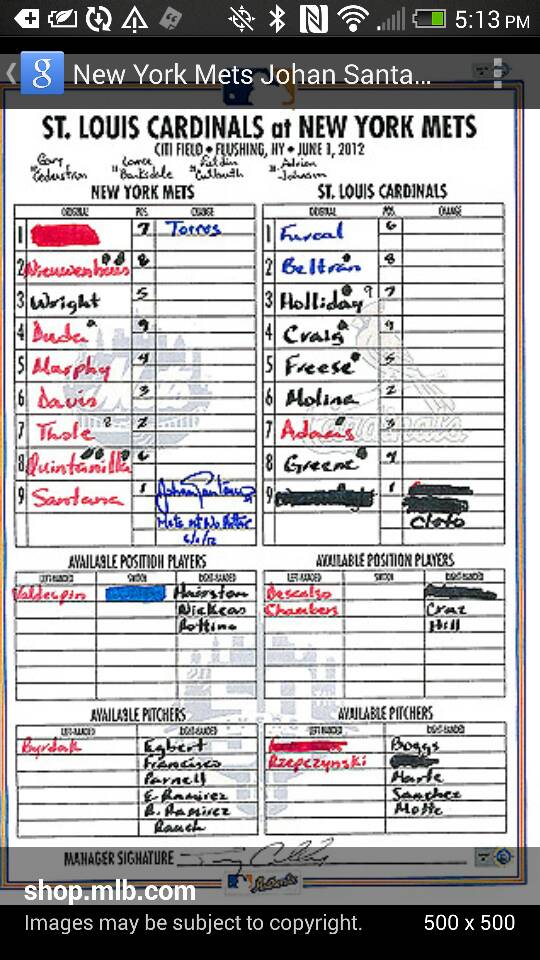 5:13 PM
New York Mets Johan Santa...
ST. LOUIS CARDINALS at NEW YORK METS
CITI FIELD • FLUSHING, NY • JUNE 1, 2012
Gary Lance Fieldin Adrian
Cederstrom Barksdale Culbreth Johnson
NEW YORK METS ST. LOUIS CARDINALS
ORIGINAL POS. CHANGE ORIGINAL POS. CHANGE
1 7 Torres 1 Furcal 6
2 Nieuwenhuis 8 2 Beltran 8
3 Wright 5 3 Holliday 7
4 Duda 9 4 Craig 9
5 Murphy 4 5 Freese 5
6 Davis 3 6 Molina 2
7 Thole 2 7 Adams 3
8 Quintanilla 6 8 Greene 4
9 Santana 1 Johan Santana 9 1
Mets 1st No Hitter
6/1/12 Cleto
AVAILABLE POSITION PLAYERS AVAILABLE POSITION PLAYERS
LEFT-HANDED SWITCH RIGHT-HANDED LEFT-HANDED SWITCH RIGHT-HANDED
Valdespin Hairston Descalso
Nickeas Chambers Cruz
Rottino Hill
AVAILABLE PITCHERS AVAILABLE PITCHERS
LEFT-HANDED RIGHT-HANDED LEFT-HANDED RIGHT-HANDED
Byrdak Egbert Boggs
Francisco Rzepczynski
Parnell Marte
E. Ramirez Sanchez
R. Ramirez Motte
Rauch
MANAGER SIGNATURE
Authentic
shop.mlb.com
Images may be subject to copyright. 500 x 500